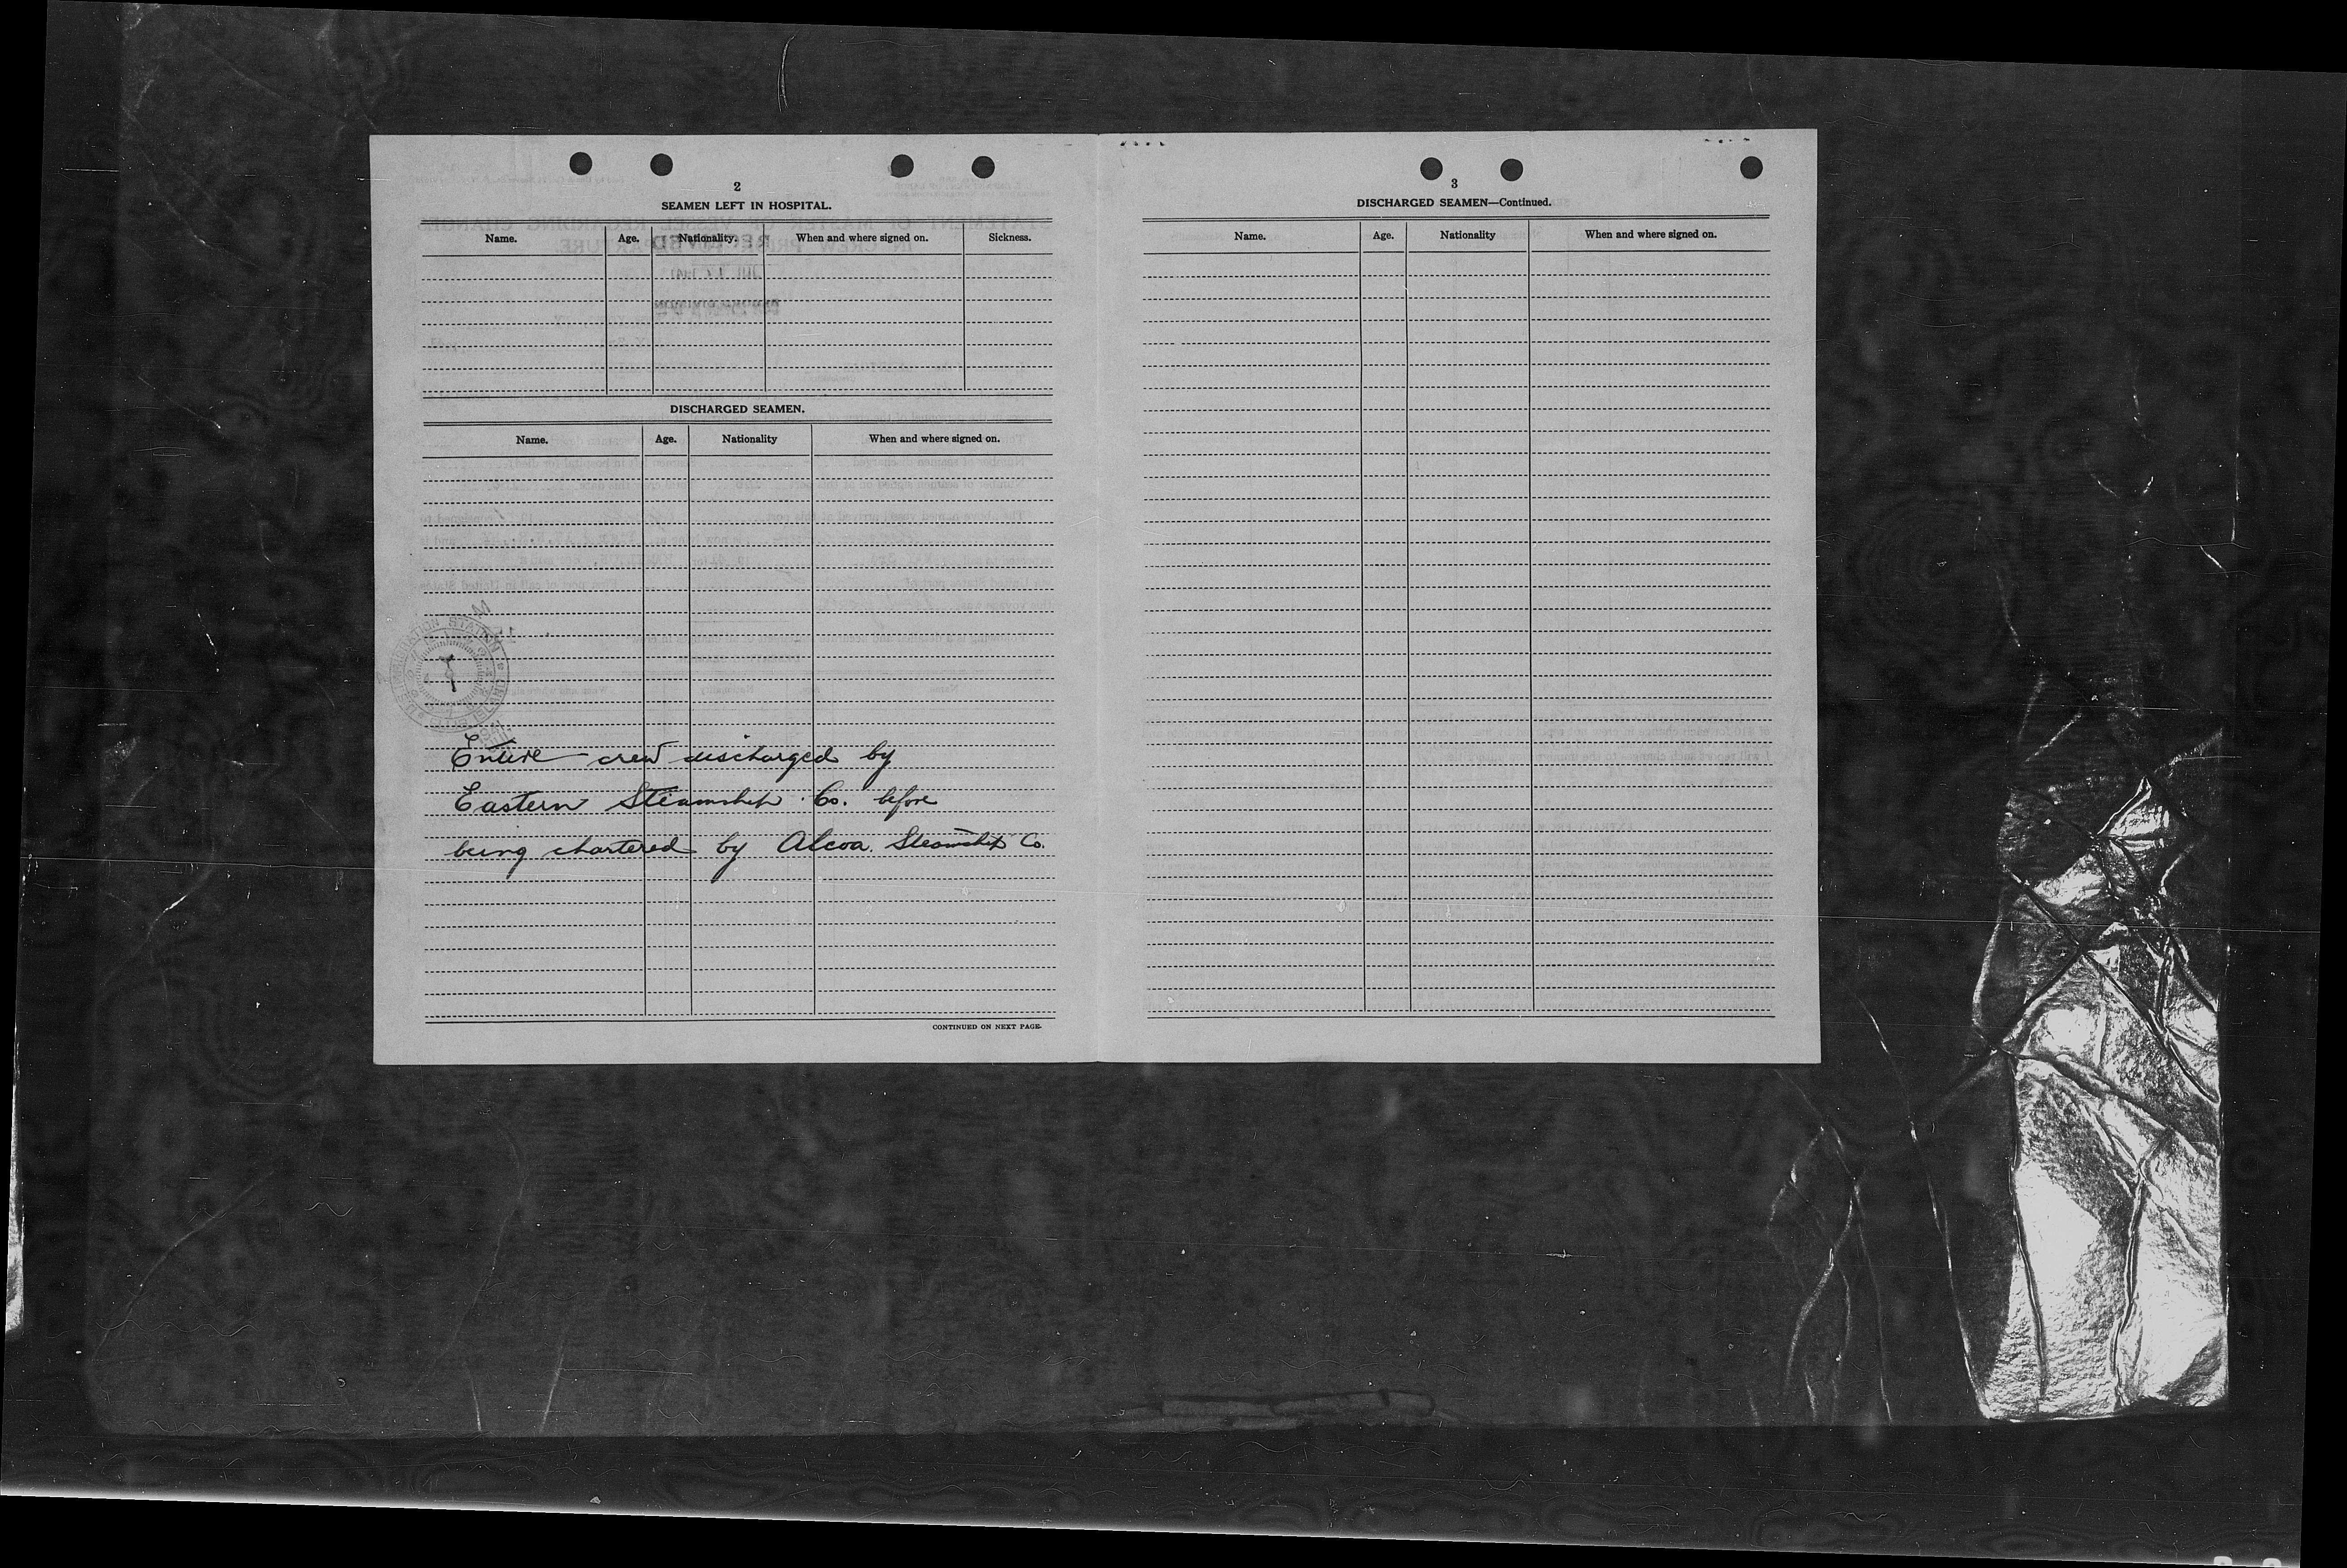 2
SEAMEN LEFT IN HOSPITAL.
Name. Age. Nationality. When and where signed on. Sickness.
DISCHARGED SEAMEN.
Name. Age. Nationality When and where signed on.
Entire crew discharged by
Eastern Steamship Co. before
being chartered by Alcoa Steamship Co.
CONTINUED ON NEXT PAGE.
3
DISCHARGED SEAMEN—Continued.
Name. Age. Nationality When and where signed on.